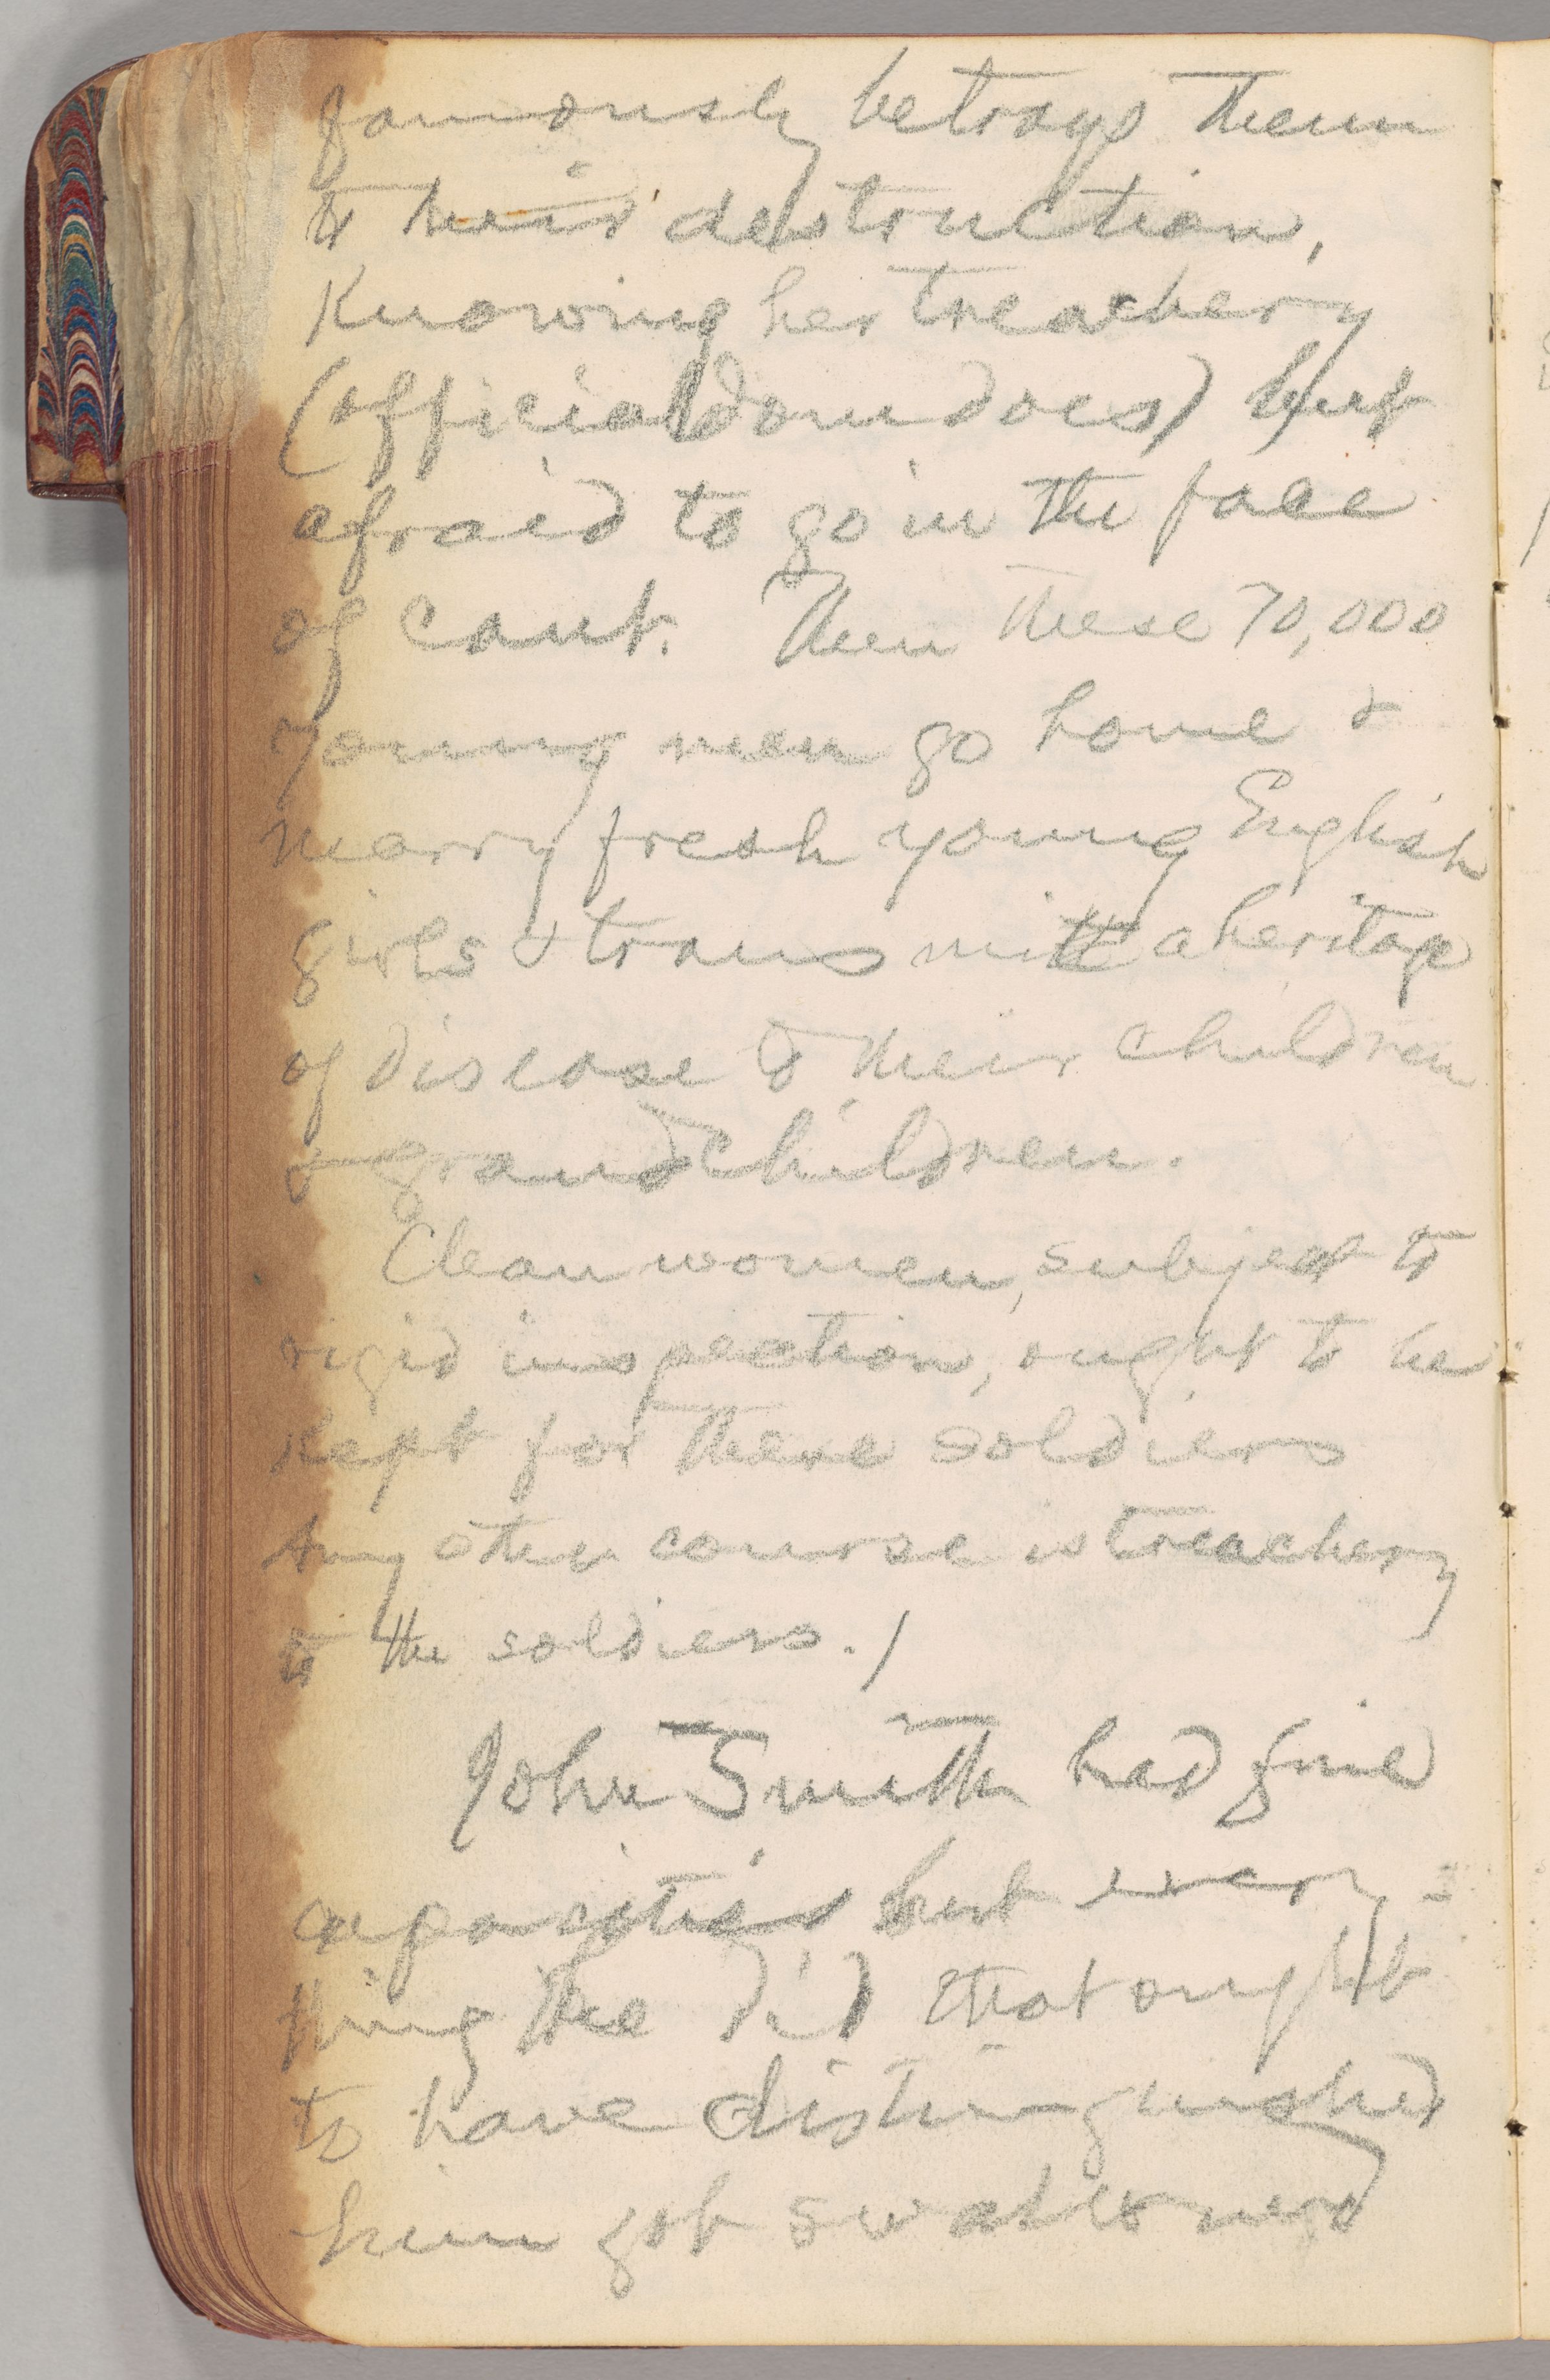 famously betrays them
to their destruction,
knowing her treachery
(officialdom does) but
afraid to go in the face
of cant. Then these 70,000
young men go home &
marry fresh young English
girls & transmitt a heritage
of disease to their children
& grandchildren.
Clean women, subject to
rigid inspection, ought to be
kept for these soldiers
Any other course is treachery
to the soldiers./
John Smith had fine
capacities but every-
thing he did that ought
to have distinguished
him got swallowed